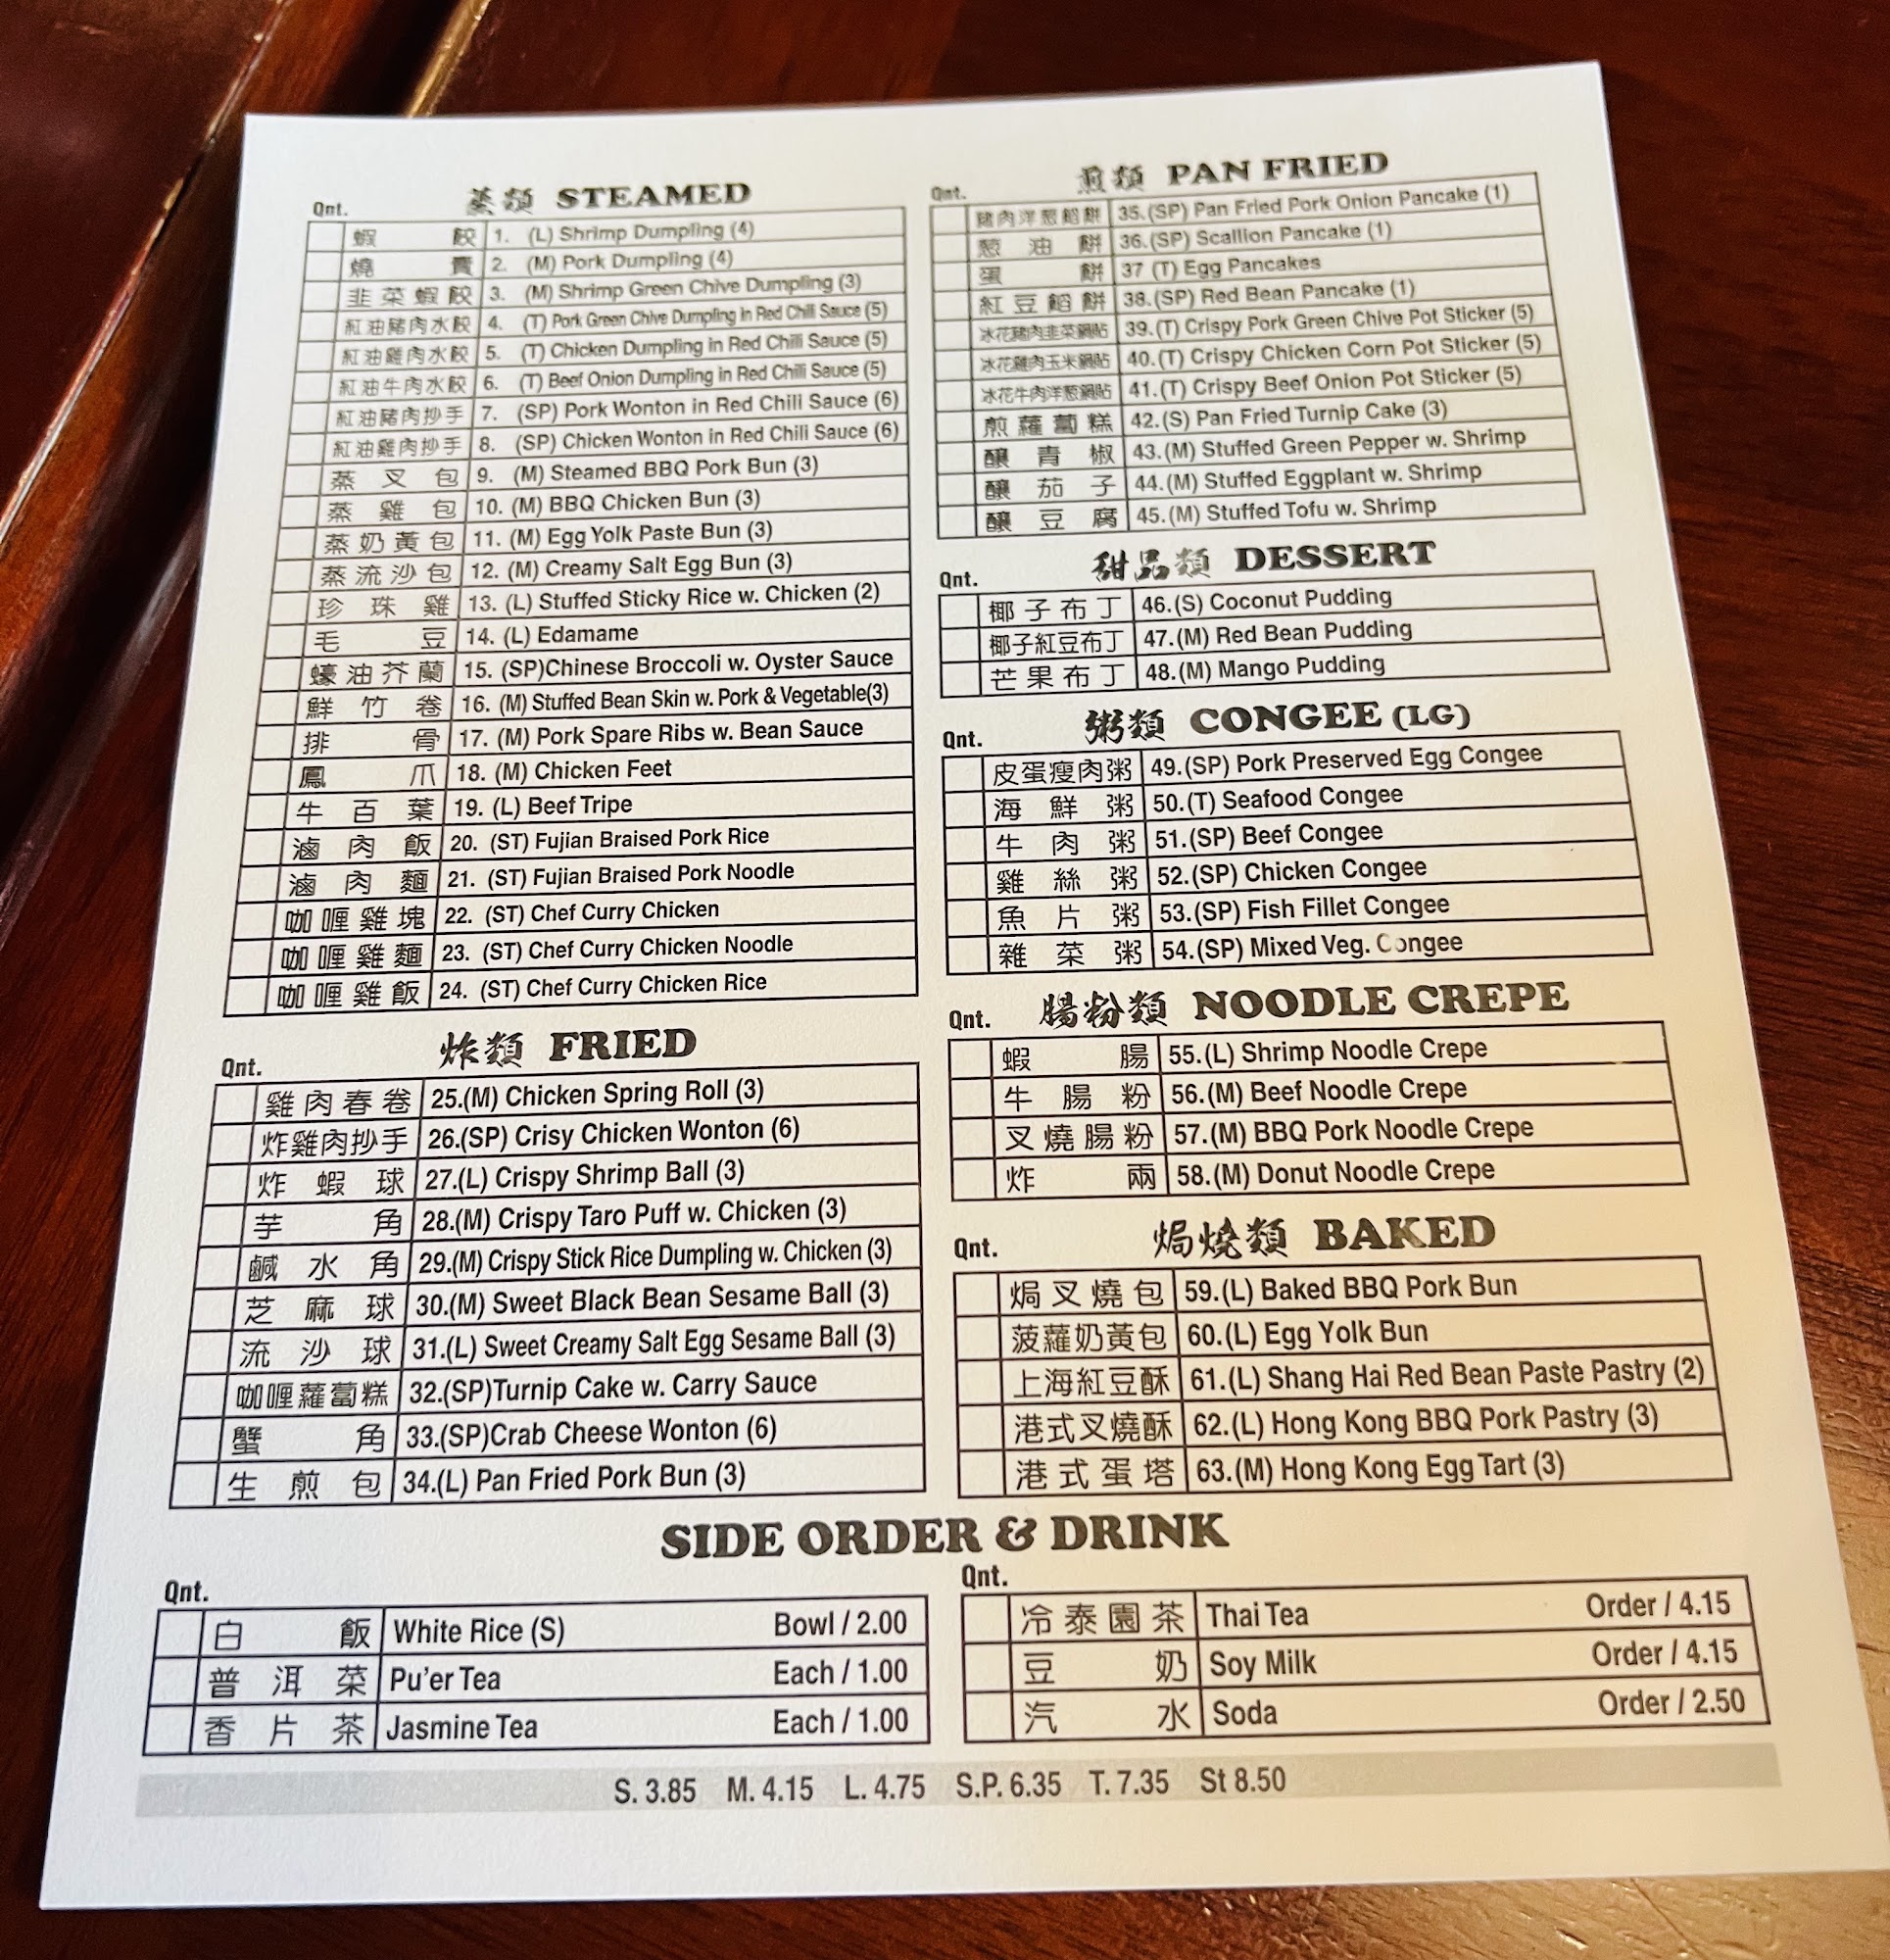 蒸類 STEAMED
Qnt.
蝦餃 1. (L) Shrimp Dumpling (4)
燒賣 2. (M) Pork Dumpling (4)
韭菜蝦餃 3. (M) Shrimp Green Chive Dumpling (3)
紅油豬肉水餃 4. (T) Pork Green Chive Dumpling In Red Chili Sauce (5)
紅油雞肉水餃 5. (T) Chicken Dumpling in Red Chili Sauce (5)
紅油牛肉水餃 6. (T) Beef Onion Dumpling in Red Chili Sauce (5)
紅油豬肉抄手 7. (SP) Pork Wonton in Red Chili Sauce (6)
紅油雞肉抄手 8. (SP) Chicken Wonton in Red Chili Sauce (6)
蒸叉包 9. (M) Steamed BBQ Pork Bun (3)
蒸雞包 10. (M) BBQ Chicken Bun (3)
蒸奶黃包 11. (M) Egg Yolk Paste Bun (3)
蒸流沙包 12. (M) Creamy Salt Egg Bun (3)
珍珠雞 13. (L) Stuffed Sticky Rice w. Chicken (2)
毛豆 14. (L) Edamame
蠔油芥蘭 15. (SP)Chinese Broccoli w. Oyster Sauce
鮮竹卷 16. (M) Stuffed Bean Skin w. Pork & Vegetable(3)
排骨 17. (M) Pork Spare Ribs w. Bean Sauce
鳳爪 18. (M) Chicken Feet
牛百葉 19. (L) Beef Tripe
滷肉飯 20. (ST) Fujian Braised Pork Rice
滷肉麵 21. (ST) Fujian Braised Pork Noodle
咖喱雞塊 22. (ST) Chef Curry Chicken
咖喱雞麵 23. (ST) Chef Curry Chicken Noodle
咖喱雞飯 24. (ST) Chef Curry Chicken Rice
炸類 FRIED
Qnt.
雞肉春卷 25.(M) Chicken Spring Roll (3)
炸雞肉抄手 26.(SP) Crisy Chicken Wonton (6)
炸蝦球 27.(L) Crispy Shrimp Ball (3)
芋角 28.(M) Crispy Taro Puff w. Chicken (3)
鹹水角 29.(M) Crispy Stick Rice Dumpling w. Chicken (3)
芝麻球 30.(M) Sweet Black Bean Sesame Ball (3)
流沙球 31.(L) Sweet Creamy Salt Egg Sesame Ball (3)
咖喱蘿蔔糕 32.(SP)Turnip Cake w. Carry Sauce
蟹角 33.(SP)Crab Cheese Wonton (6)
生煎包 34.(L) Pan Fried Pork Bun (3)
煎類 PAN FRIED
Qnt.
豬肉洋葱餡餅 35.(SP) Pan Fried Pork Onion Pancake (1)
葱油餅 36.(SP) Scallion Pancake (1)
蛋餅 37 (T) Egg Pancakes
紅豆餡餅 38.(SP) Red Bean Pancake (1)
冰花豬肉韭菜鍋貼 39.(T) Crispy Pork Green Chive Pot Sticker (5)
冰花雞肉玉米鍋貼 40.(T) Crispy Chicken Corn Pot Sticker (5)
冰花牛肉洋葱鍋貼 41.(T) Crispy Beef Onion Pot Sticker (5)
煎蘿蔔糕 42.(S) Pan Fried Turnip Cake (3)
釀青椒 43.(M) Stuffed Green Pepper w. Shrimp
釀茄子 44.(M) Stuffed Eggplant w. Shrimp
釀豆腐 45.(M) Stuffed Tofu w. Shrimp
甜品類 DESSERT
Qnt.
椰子布丁 46.(S) Coconut Pudding
椰子紅豆布丁 47.(M) Red Bean Pudding
芒果布丁 48.(M) Mango Pudding
粥類 CONGEE (LG)
Qnt.
皮蛋瘦肉粥 49.(SP) Pork Preserved Egg Congee
海鮮粥 50.(T) Seafood Congee
牛肉粥 51.(SP) Beef Congee
雞絲粥 52.(SP) Chicken Congee
魚片粥 53.(SP) Fish Fillet Congee
雜菜粥 54.(SP) Mixed Veg. Congee
腸粉類 NOODLE CREPE
Qnt.
蝦腸 55.(L) Shrimp Noodle Crepe
牛腸粉 56.(M) Beef Noodle Crepe
叉燒腸粉 57.(M) BBQ Pork Noodle Crepe
炸兩 58.(M) Donut Noodle Crepe
焗燒類 BAKED
Qnt.
焗叉燒包 59.(L) Baked BBQ Pork Bun
菠蘿奶黃包 60.(L) Egg Yolk Bun
上海紅豆酥 61.(L) Shang Hai Red Bean Paste Pastry (2)
港式叉燒酥 62.(L) Hong Kong BBQ Pork Pastry (3)
港式蛋塔 63.(M) Hong Kong Egg Tart (3)
SIDE ORDER & DRINK
Qnt.
白飯 White Rice (S) Bowl / 2.00
普洱菜 Pu'er Tea Each / 1.00
香片茶 Jasmine Tea Each / 1.00
Qnt.
冷泰園茶 Thai Tea Order / 4.15
豆奶 Soy Milk Order / 4.15
汽水 Soda Order / 2.50
S. 3.85 M. 4.15 L. 4.75 S.P. 6.35 T. 7.35 St 8.50